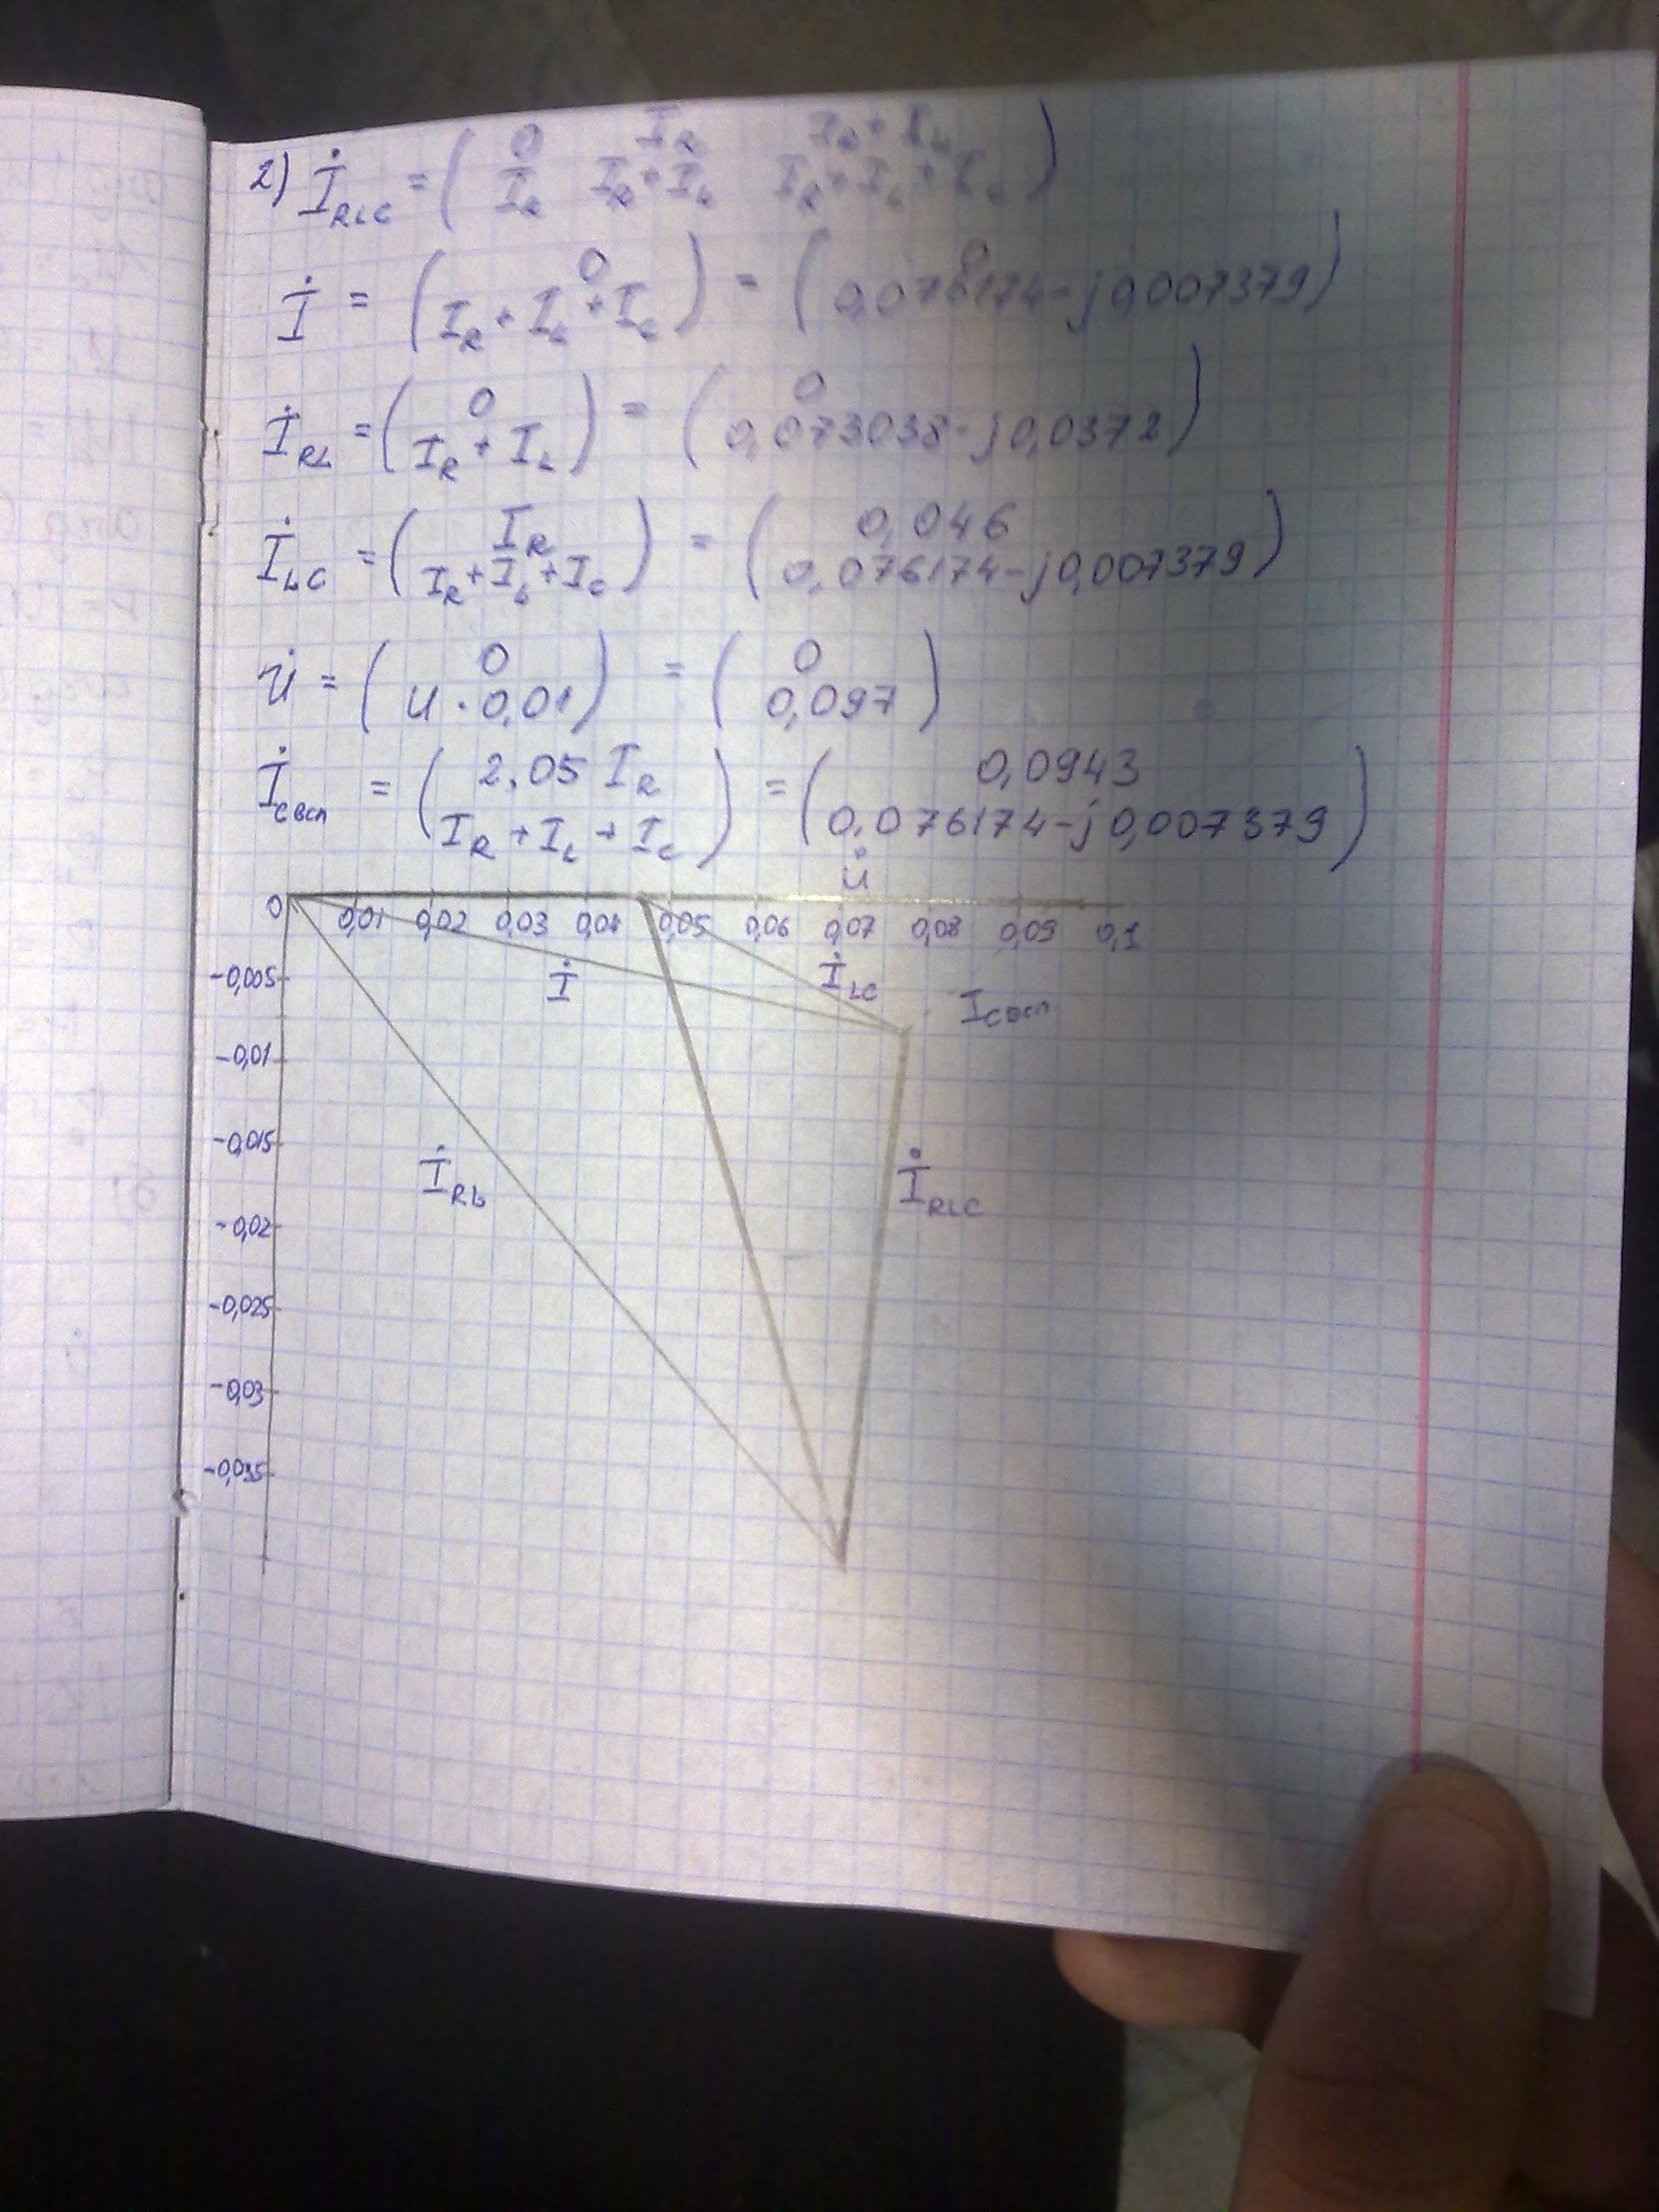 2) İ_RLC = ( 0 I_R I_R + I_L
I_R I_R + I_L I_R + I_L + I_C )
İ = ( 0 I_R + I_L + I_C ) = ( 0 0,076174 - j0,007379 )
İ_RL = ( 0 I_R + I_L ) = ( 0 0,073038 - j0,0372 )
İ_LC = ( I_R I_R + I_L + I_C ) = ( 0,046 0,076174 - j0,007379 )
U̇ = ( 0 U · 0,01 ) = ( 0 0,097 )
İ_Cвсп = ( 2,05 I_R I_R + I_L + I_C ) = ( 0,0943 0,076174 - j0,007379 )
U̇
0 0,01 0,02 0,03 0,04 0,05 0,06 0,07 0,08 0,09 0,1
-0,005 İ İ_LC
I_Cвсп
-0,01
-0,015
İ_RL İ_RLC
-0,02
-0,025
-0,03
-0,035